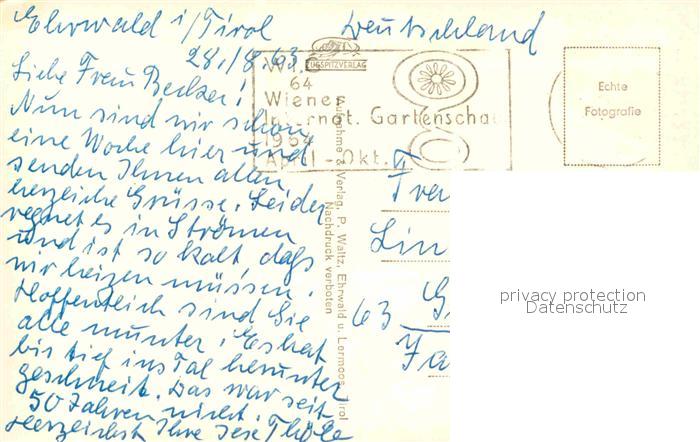 Ehrwald i/Tirol
28./8.63
Deutschland
Liebe Frau Becker!
Nun sind wir schon
eine Woche hier und
senden Ihnen allen
herzliche Grüsse. Leider
regnet es in Strömen
und ist so kalt daß
wir heizen müssen.
Hoffentlich sind Sie
alle munter. Es hat
bis tief ins Tal herunter
geschneit. Das war seit
50 Jahren nicht.
Herzlichst Ihre
ZUGSPITZVERLAG
64
Wiener
Internat. Gartenschau
1964
April - Okt.
Aufnahme & Verlag, P. Waltz, Ehrwald u. Lermoos, Tirol
Nachdruck verboten
Echte
Fotografie
Lin
63
privacy protection
Datenschutz